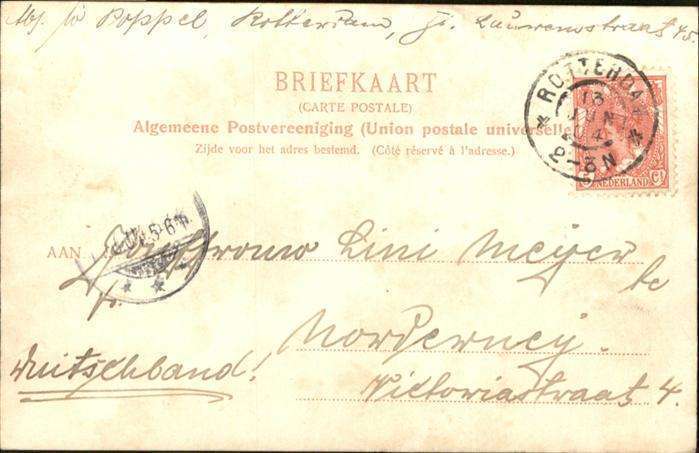 Afz. W Poppel, Rotterdam, St. Laurensstraat 45
BRIEFKAART
(CARTE POSTALE)
Algemeene Postvereeniging (Union postale universelle)
Zijde voor het adres bestemd. (Côté réservé à l'adresse.)
ROTTERDAM
18
JUN
4
2-3N
NEDERLAND
5-6
AAN
Lini Meyer
te
Norderney.
Duitschland!
Victoriastraat 4.